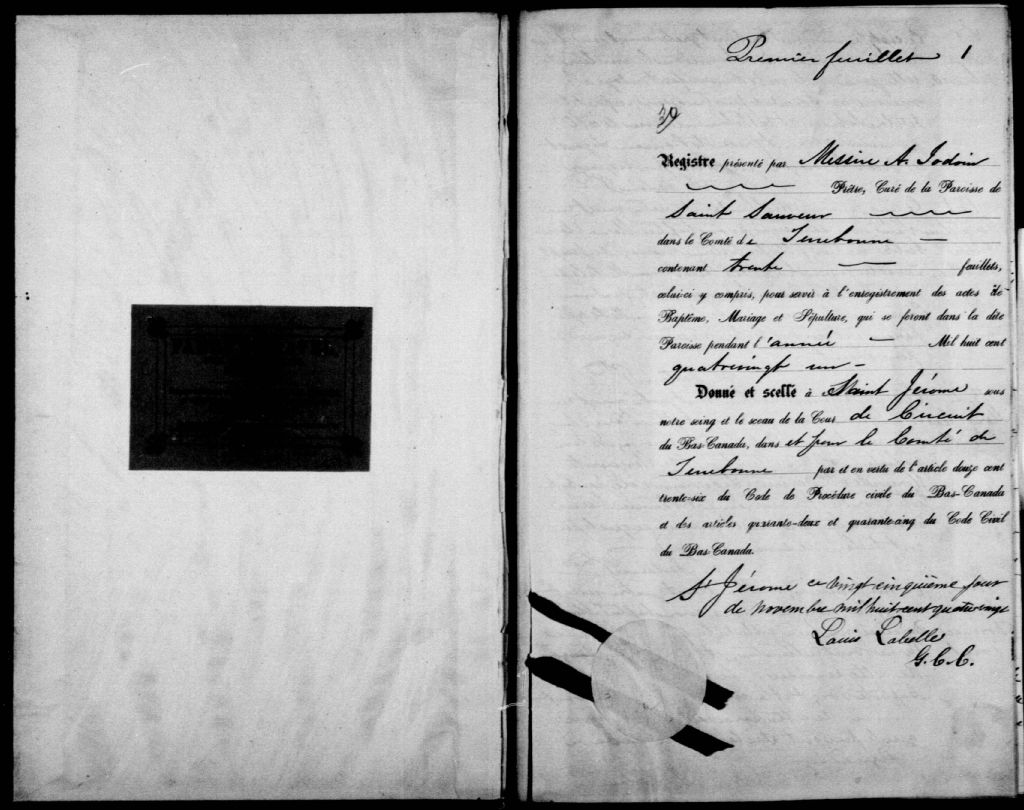 Premier feuillet 1
Registre présenté par Messire A. Jodoin
Prêtre, Curé de la Paroisse de
Saint Sauveur
dans le Comté de Terrebonne —
contenant trente — feuillets,
celui-ci y compris, pour servir à l'enregistrement des actes de
Baptême, Mariage et Sépulture, qui se feront dans la dite
Paroisse pendant l'année — Mil huit cent
quatrevingt un -
Donné et scellé à Saint Jérome sous
notre seing et le sceau de la Cour de Circuit
du Bas-Canada, dans et pour le Comté de
Terrebonne par et en vertu de l'article douze cent
trente-six du Code de Procédure civile du Bas-Canada
et des articles quarante-deux et quarante-cinq du Code Civil
du Bas-Canada.
St Jérome ce vingt cinquième jour
de novembre mil huit cent quatrevingt
Louis Labelle
G.C.C.